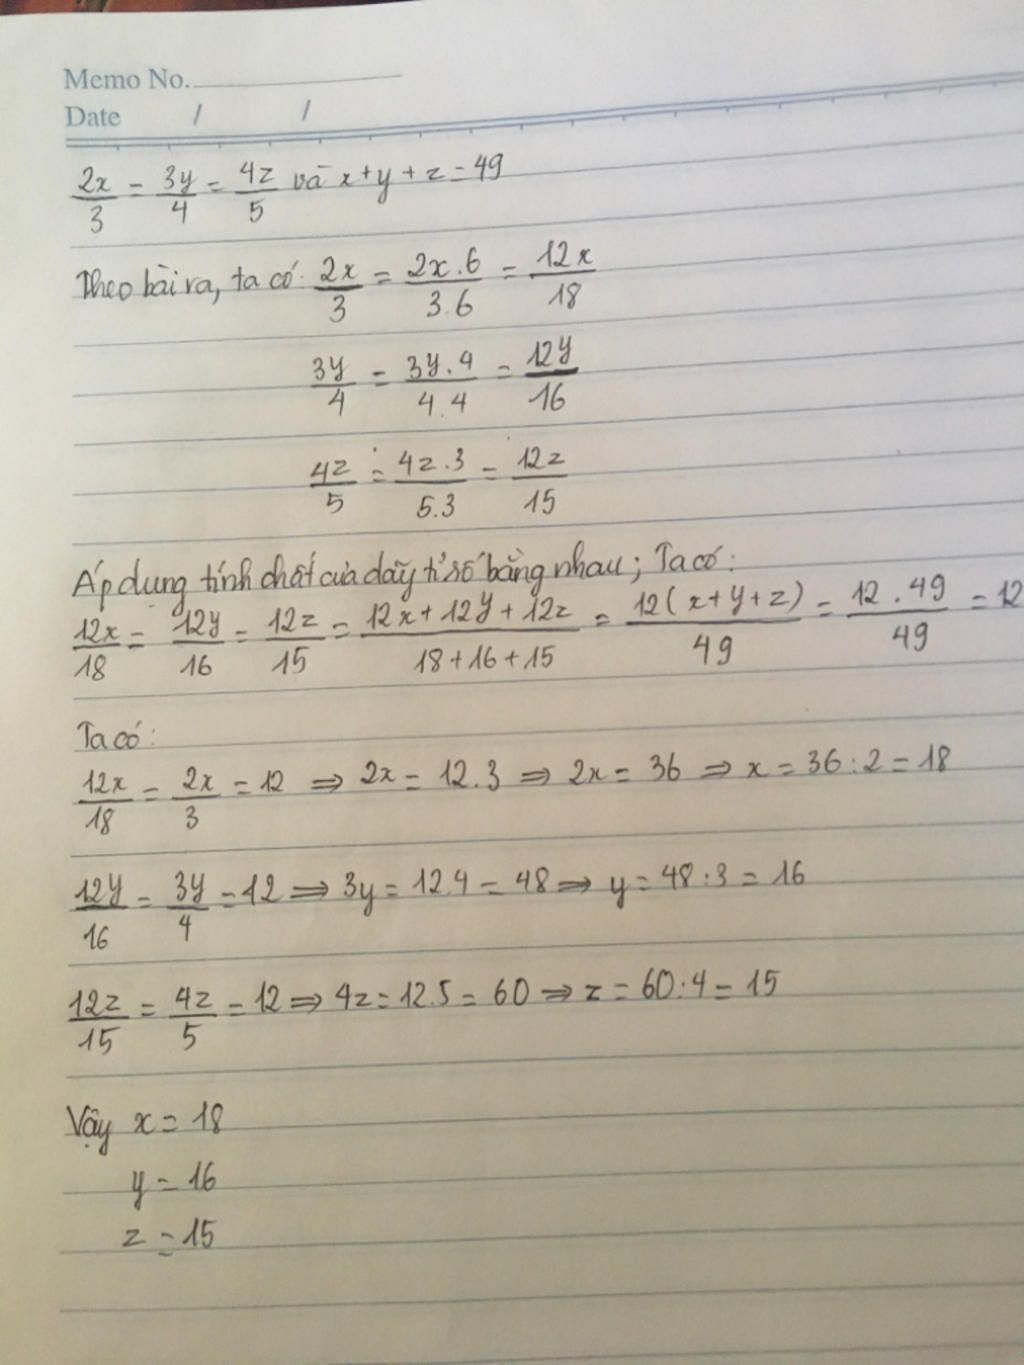 Memo No.
Date / /
2x/3 = 3y/4 = 4z/5 và x+y+z=49
Theo bài ra, ta có: 2x/3 = 2x.6/3.6 = 12x/18
3y/4 = 3y.4/4.4 = 12y/16
4z/5 = 4z.3/5.3 = 12z/15
Áp dụng tính chất của dãy tỉ số bằng nhau; Ta có:
12x/18 = 12y/16 = 12z/15 = 12x+12y+12z/18+16+15 = 12(x+y+z)/49 = 12.49/49 = 12
Ta có:
12x/18 = 2x/3 = 12 ⇒ 2x = 12.3 ⇒ 2x = 36 ⇒ x = 36:2 = 18
12y/16 = 3y/4 = 12 ⇒ 3y = 12.4 = 48 ⇒ y = 48:3 = 16
12z/15 = 4z/5 = 12 ⇒ 4z = 12.5 = 60 ⇒ z = 60:4 = 15
Vậy x = 18
y = 16
z = 15